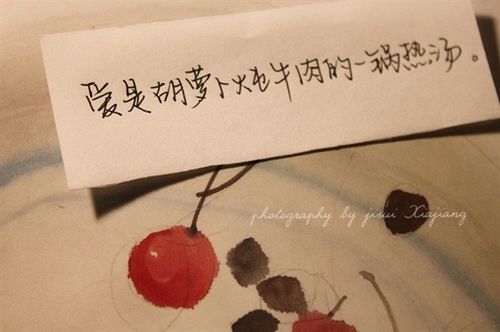 爱是胡萝卜火屯牛肉的一锅热汤。
photography by jisui Xiajiang